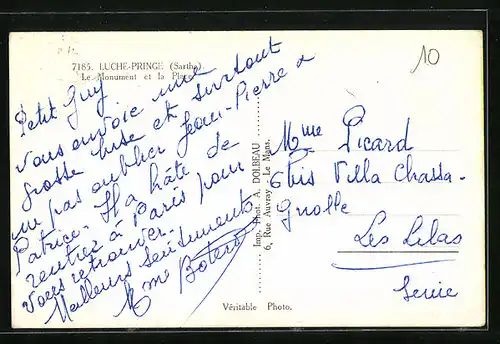 7185. LUCHE-PRINGE (Sarthe)
Le Monument et la Place
10
Petit Guy
Vous envoie une
grosse bise et surtout
ne pas oublier Jean-Pierre &
Patrice. Il a hâte de
rentrer à Paris pour
vous retrouver.
Meilleurs Sentiments
Mme
Imp. Phot. A. DOLBEAU
6, Rue Auvray - Le Mans.
Mme Picard
6 bis Villa Chassa-
gnolle
Les Lilas
Seine
Véritable Photo.